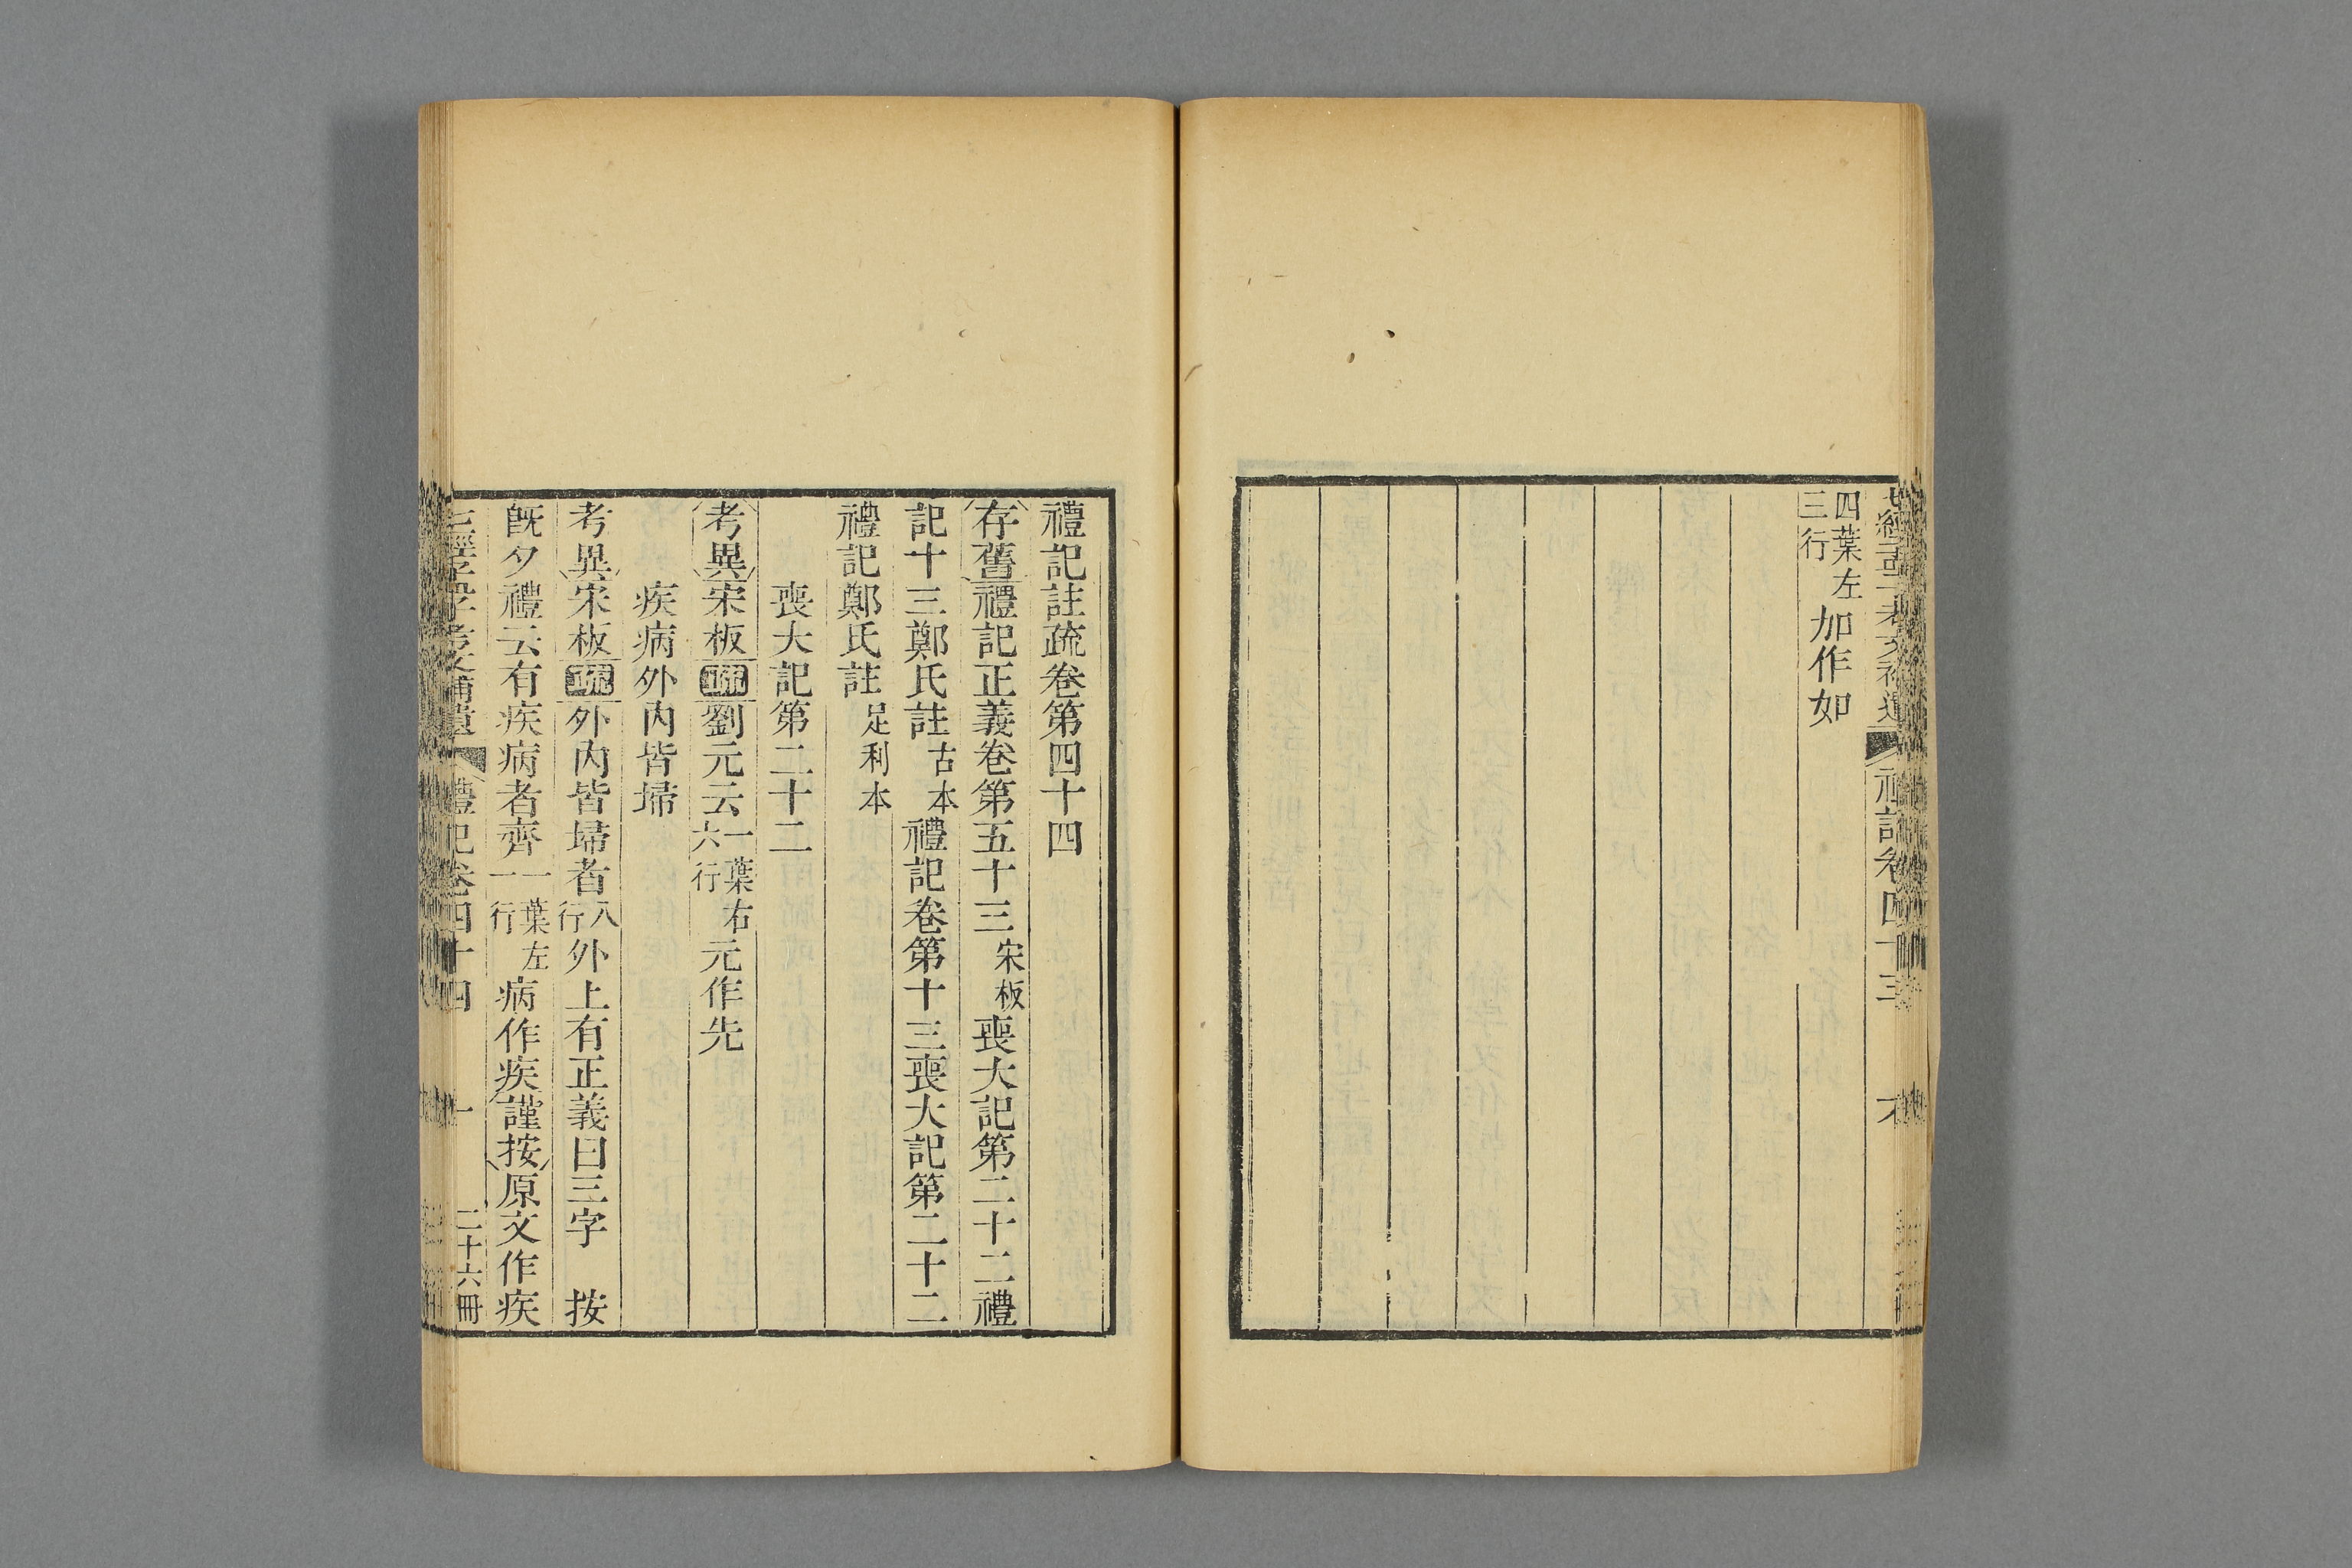 四葉左三行加作如
禮記註疏卷第四十四
存舊禮記正義卷第五十三宋板喪大記第二十二禮
記十三鄭氏註古本禮記卷第十三喪大記第二十二
禮記鄭氏註足利本
喪大記第二十二
考異宋板疏劉元云一葉右六行元作先
疾病外內皆埽
考異宋板疏外內皆埽者八行外上有正義曰三字　按
旣夕禮云有疾病者齊一葉左一行病作疾謹按原文作疾
禮記卷四十四 一 二十六冊